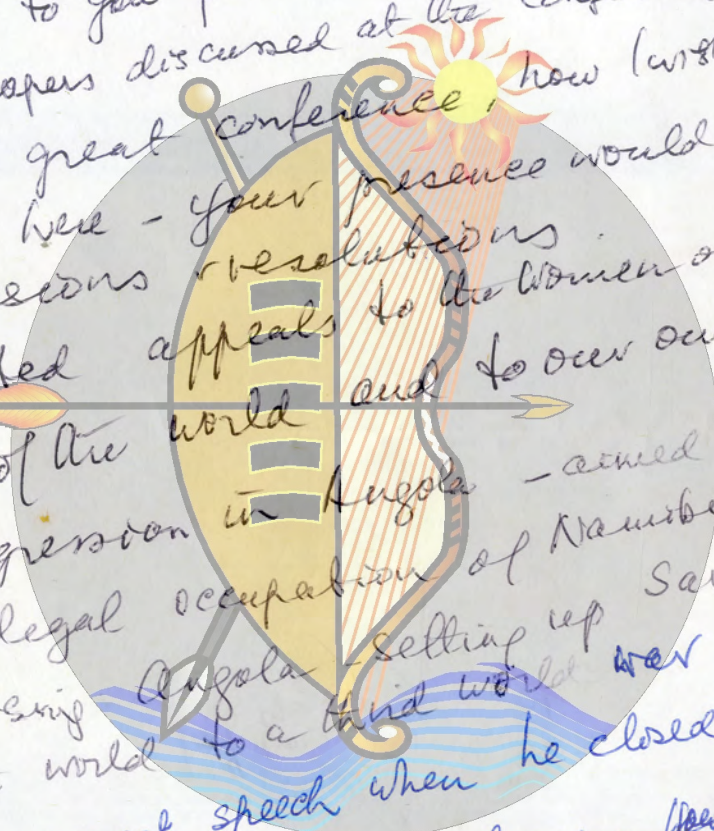 to
papers discussed at the
great conference, how I wish
here - your presence would
resolutions.
appeals to the Women
of the world and to our own
in Angola - aimed
legal occupation of
Angola - setting up
world to a third world war
speech when he closed